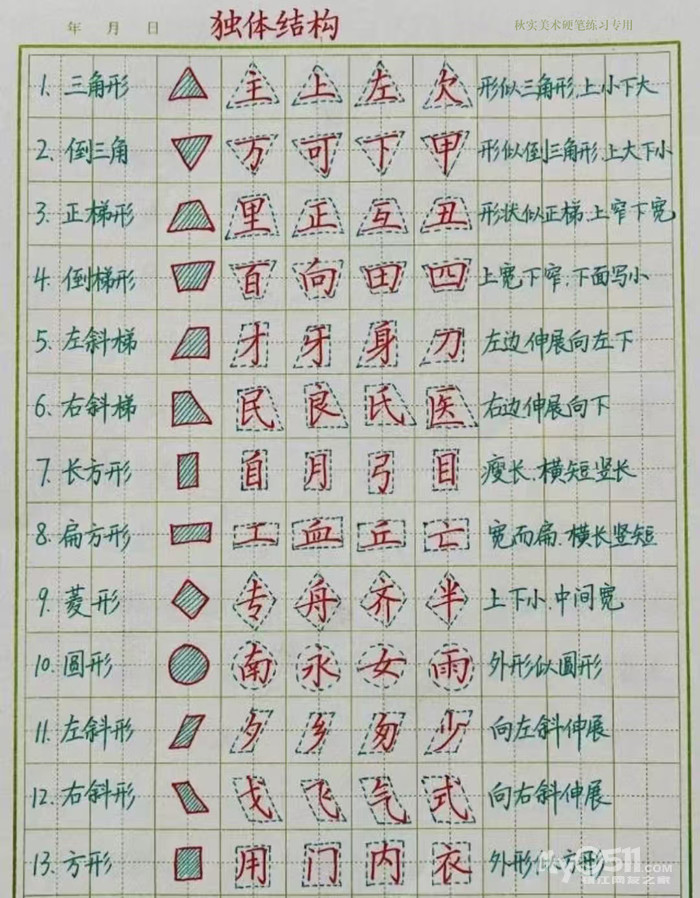 年 月 日 独体结构 秋实美术硬笔练习专用
1. 三角形 主 上 左 欠 形似三角形,上小下大
2. 倒三角 万 可 下 甲 形似倒三角形,上大下小
3. 正梯形 里 正 互 丑 形状似正梯,上窄下宽
4. 倒梯形 百 向 田 四 上宽下窄,下面写小
5. 左斜梯 才 牙 身 刀 左边伸展向左下
6. 右斜梯 民 良 氏 医 右边伸展向下
7. 长方形 自 月 弓 目 瘦长,横短竖长
8. 扁方形 工 血 丘 亡 宽而扁,横长竖短
9. 菱形 专 舟 齐 半 上下小,中间宽
10. 圆形 南 永 女 雨 外形似圆形
11. 左斜形 夕 乡 匆 少 向左斜伸展
12. 右斜形 戈 飞 气 式 向右斜伸展
13. 方形 用 门 内 衣 外形似方形